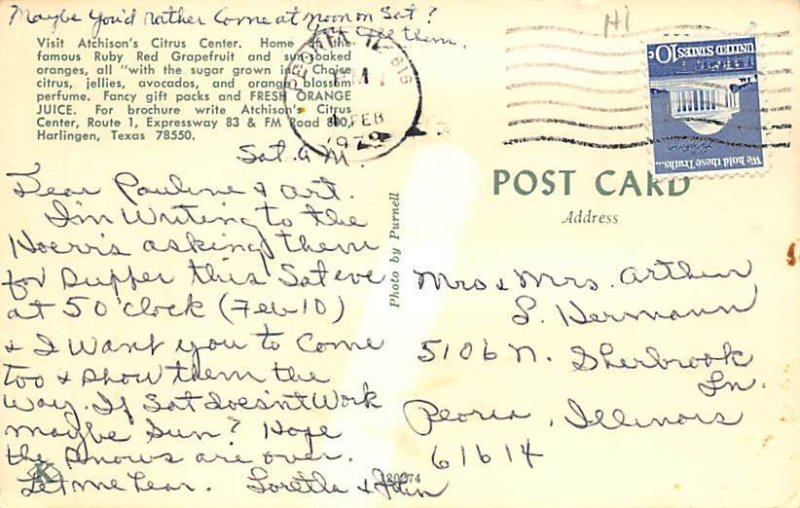 Maybe You'd rather Come at noon on Sat?
call them.
Visit Atchison's Citrus Center. Home of the
famous Ruby Red Grapefruit and sun-soaked
oranges, all "with the sugar grown in." Choice
citrus, jellies, avocados, and orange blossom
perfume. Fancy gift packs and FRESH ORANGE
JUICE. For brochure write Atchison's Citrus
Center, Route 1, Expressway 83 & FM Road 800,
Harlingen, Texas 78550.
616
PM
FEB
1979
UNITED STATES 10c
We hold these Truths...
Sat. A.M.
Dear Pauline & Art.
I'm Writing to the
Hoerr's asking them
for Supper this Sat eve
at 5 O'clock (Feb 10)
& I Want you to Come
too & show them the
Way. If Sat doesn't Work
maybe Sun? Hope
the snows are over.
Let me hear. Loretta & John
Photo by Purnell
K
POST CARD
Address
Mr. & Mrs. Arthur
L. Hermann
5106 N. Sherbrook
Ln.
Peoria, Illinois
61614